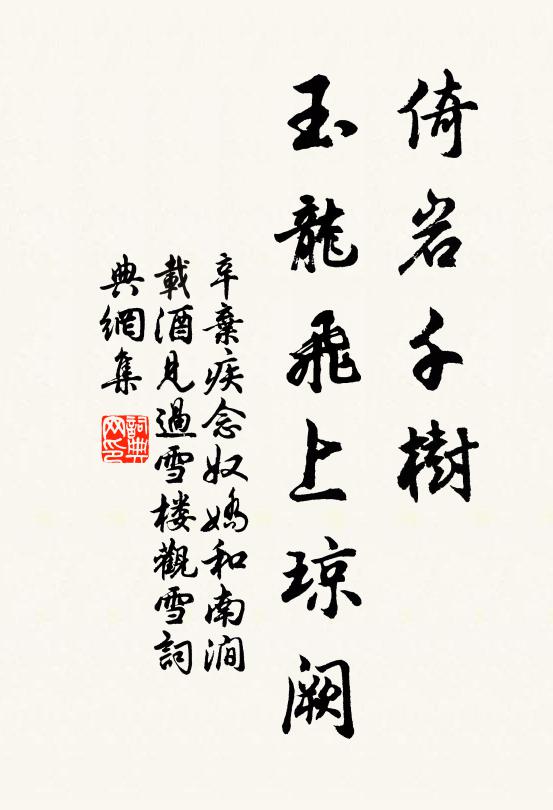 倚岩千樹
玉龍飛上琼闕
辛棄疾念奴嬌和南澗
載酒見過雪楼觀雪詞
典網集
詞典网印